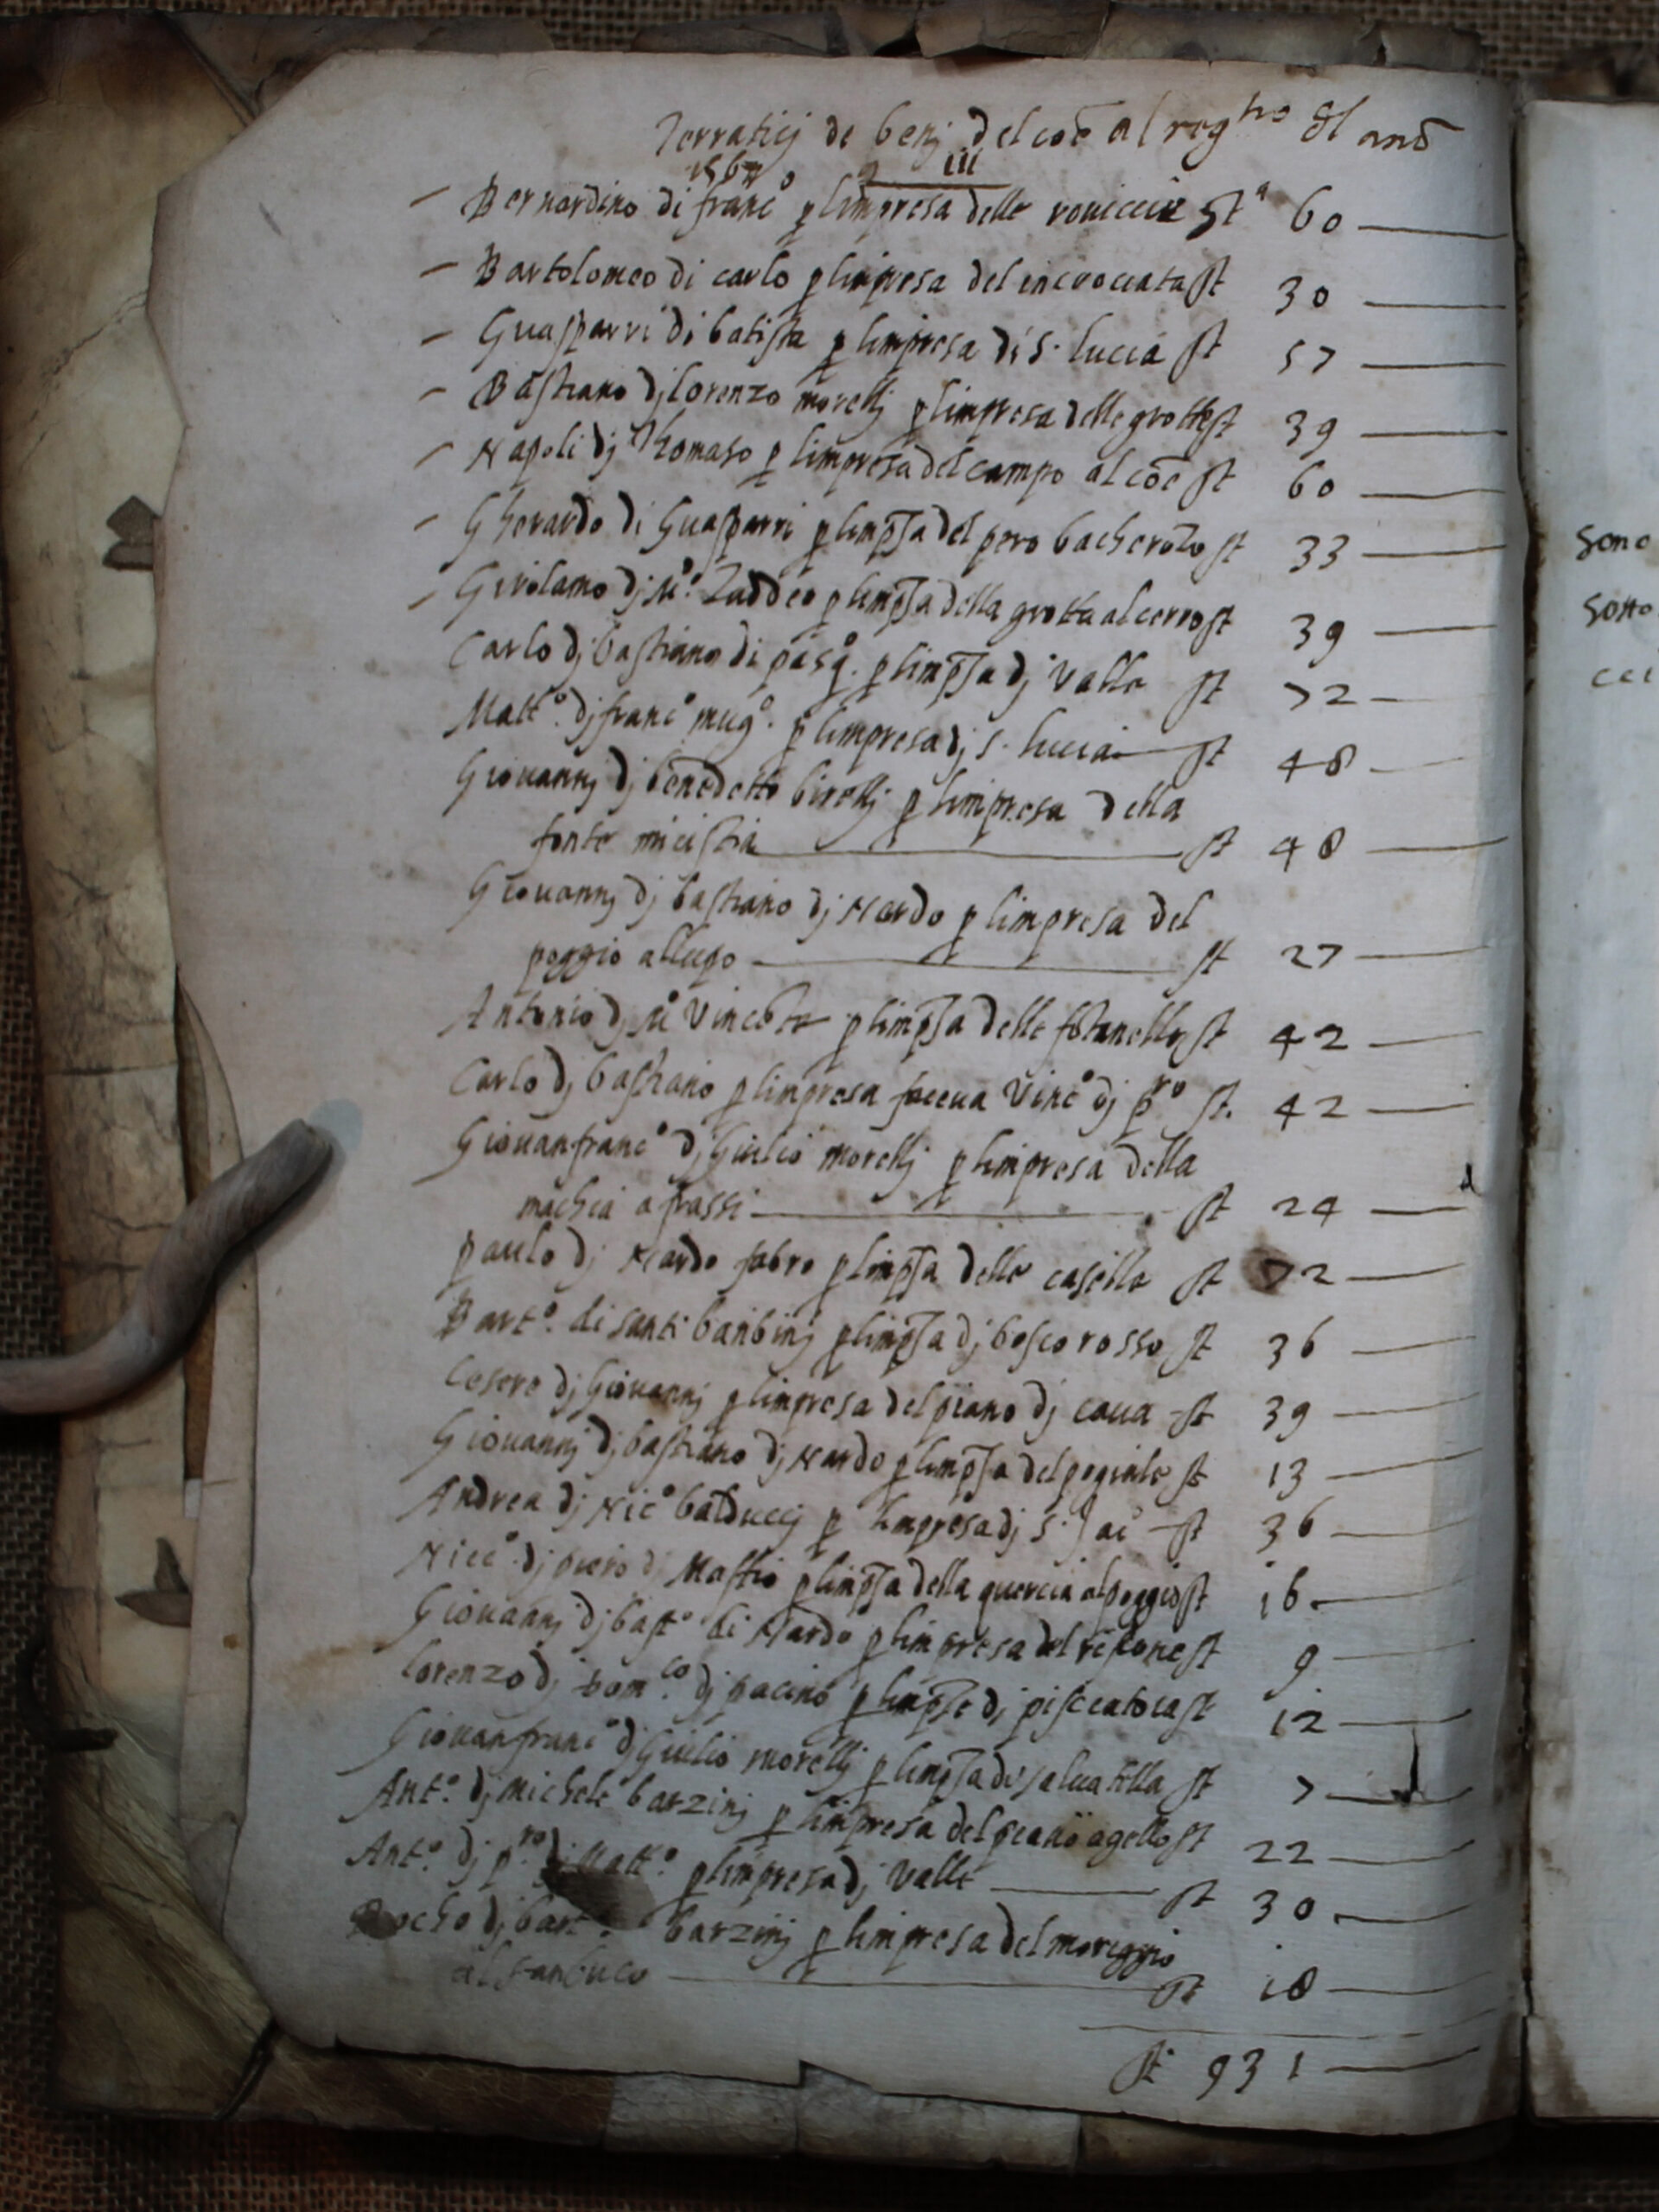 Terraticj de benj del coē al reg^tro dl anō
156 III
– Bernardino di franc° p limpresa delle roniccie St^a 60
– Bartolomeo di carlo p limpresa del incrociata st 30
– Guasparri di batista p limpresa di s. lucia st 57
– Bastiano dj lorenzo morellj p limpresa delle grotte st 39
– Napoli dj Thomaso p limpresa del campo al cōe st 60
– Gherardo di Guasparri p limpsa del pero bacherozo st 33
– Girolamo dj M°. Taddeo p limpsa della grotta al cerro st 39
Carlo dj bastiano di pasq°. p limpsa dj Valle st 72
Matt°. dj franc° mug°. p limpresa dj s. lucia st 48
Giouannj dj benedetto birellj p limpresa della
fonte micistia st 48
Giouannj dj bastiano dj Nardo p limpresa del
poggio allupo st 27
Antonio dj M° Vincēte p limpsa delle fōtanelle st 42
Carlo dj bastiano p limpresa faceua Vinc° dj p^ro st. 42
Giouanfranc° dj Giulio morellj p limpresa della
machia a frassi st 24
paulo dj Nardo fabro p limpsa delle caselle st 72
Bart°. di santi banbinj p limpsa dj bosco rosso st 36
Cesere dj Giouannj p limpresa del piano dj caua st 39
Giouannj dj bastiano dj Nardo p limpsa del pogiale st 13
Andrea dj Nic° balduccj p limpresa dj s. Jac° st 36
Nicc°. dj piero dj Maffio p limpsa della quercia al poggio st 16
Giouannj dj bast° di Nardo p limpresa del st 9
lorenzo dj dom^co. dj pacino p limpsa dj st 12
Giouanfranc° dj Giulio morellj p limpsa di saluatella st 7
Ant°. dj Michele barzinj p limpresa del piano agello st 22
Ant°. dj p^ro. dj Matt°. p limpresa dj Valle st 30
Rocho dj bart°. barzinj p limpresa del moreggio
al sanbuco st 18
st 931
sono
sotto
cci